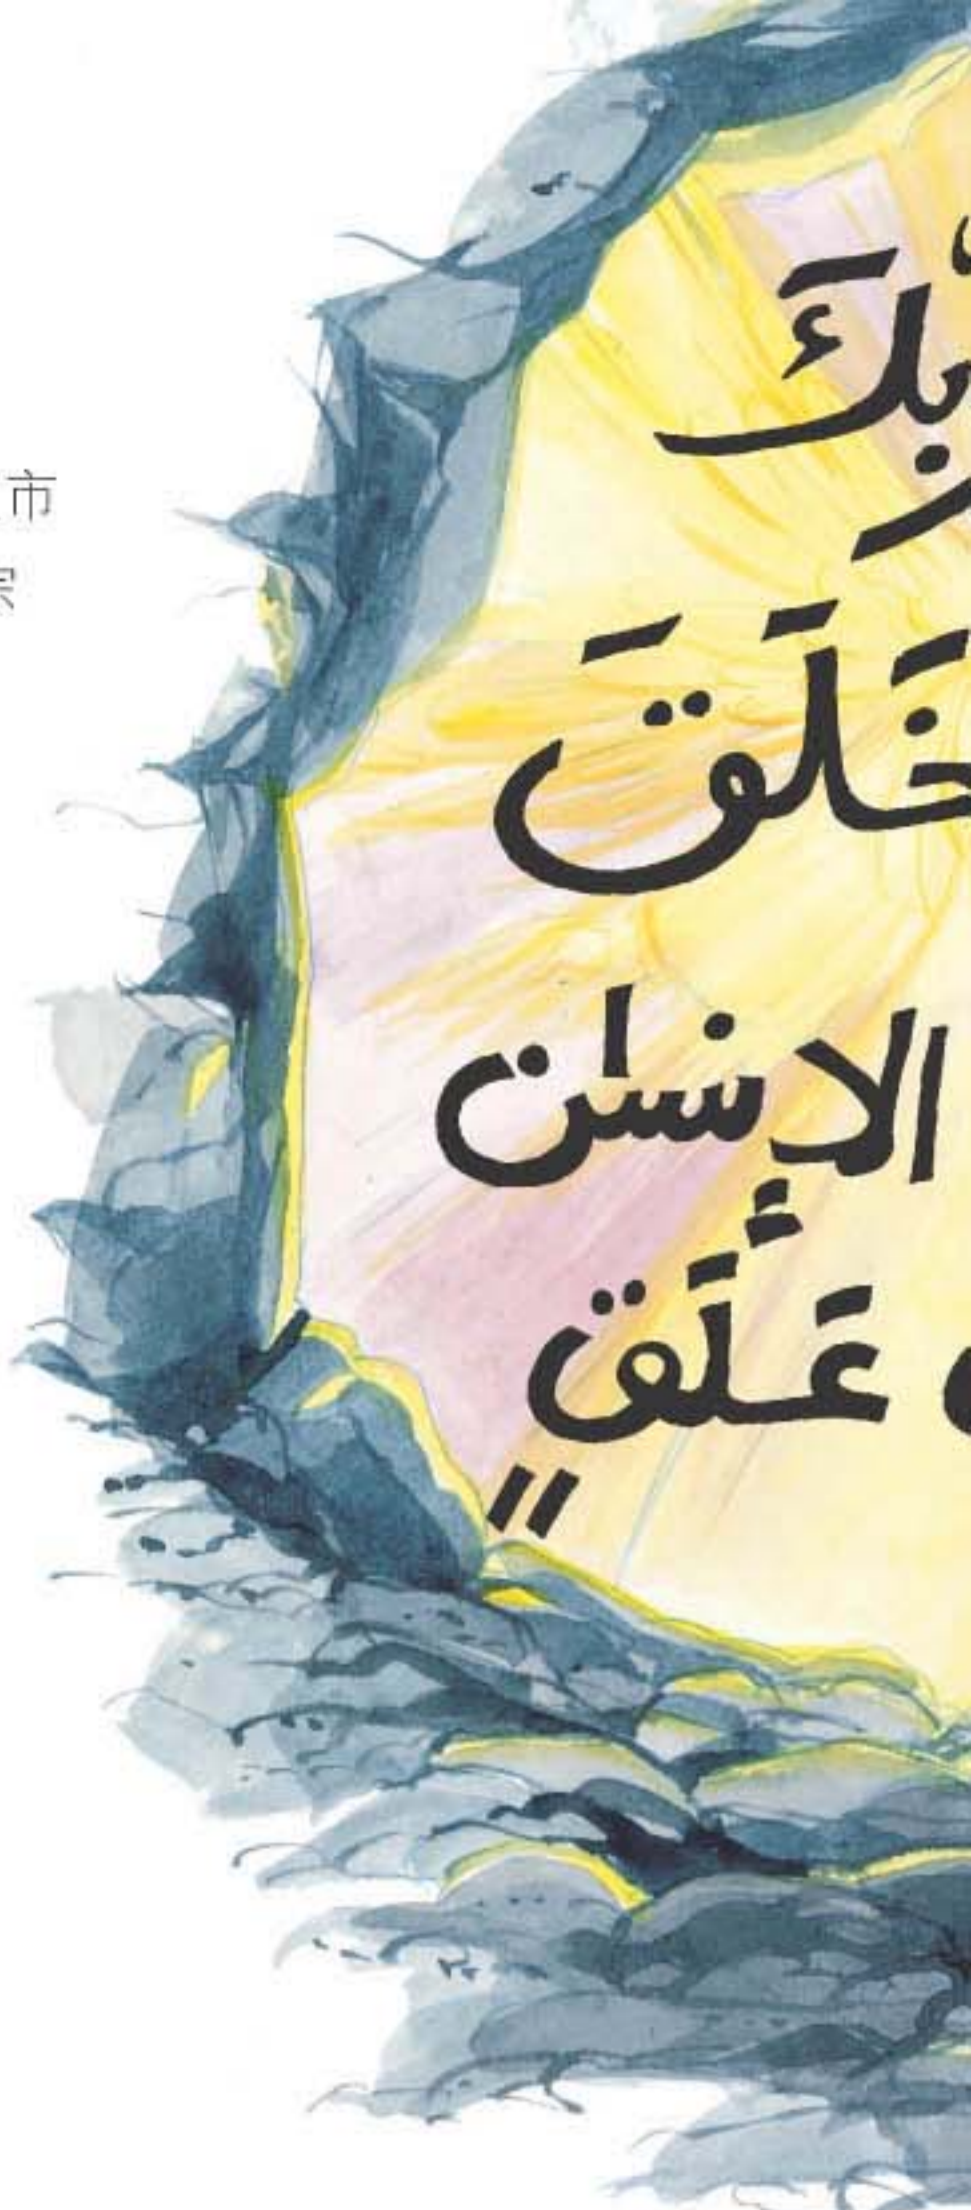 市
بِّكَ
خَلَقَ
الإِنسَٰنَ
عَلَقٍ